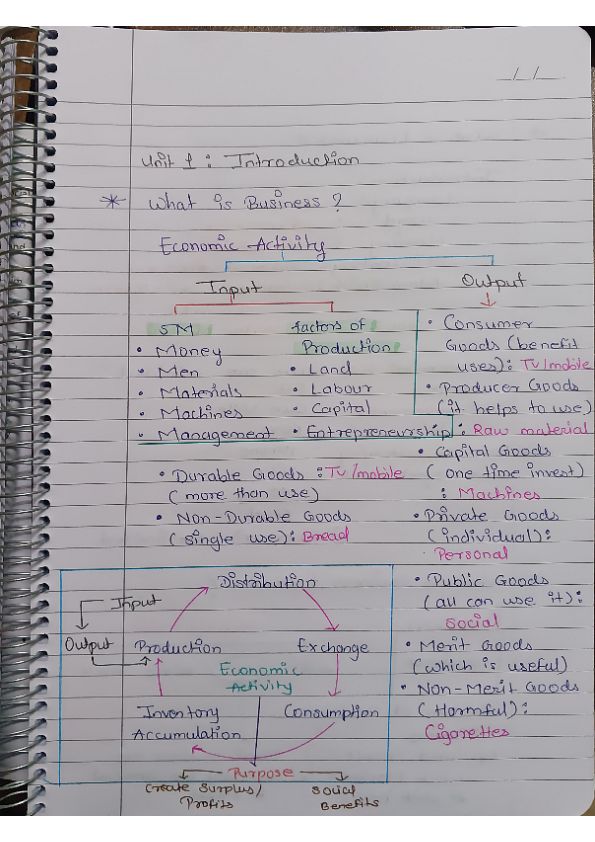 Unit 1 : Introduction
* What is Business ?
Economic Activity
Input
Output
5M
• Money
• Men
• Materials
• Machines
• Management
factors of
Production
• Land
• Labour
• Capital
• Entrepreneurship
• Consumer
Goods (benefit
uses): TV/mobile
• Producer Goods
(it helps to use)
: Raw material
• Capital Goods
( one time invest)
: Machines
• Private Goods
(individual):
Personal
• Public Goods
(all can use it):
Social
• Merit Goods
(which is useful)
• Non-Merit Goods
(Harmful):
Cigarettes
• Durable Goods : TV/mobile
( more than use)
• Non-Durable Goods
(single use): Bread
Distribution
Input
Output
Production
Exchange
Economic
Activity
Inventory
Accumulation
Consumption
Purpose
Create Surplus/
Profits
Social
Benefits